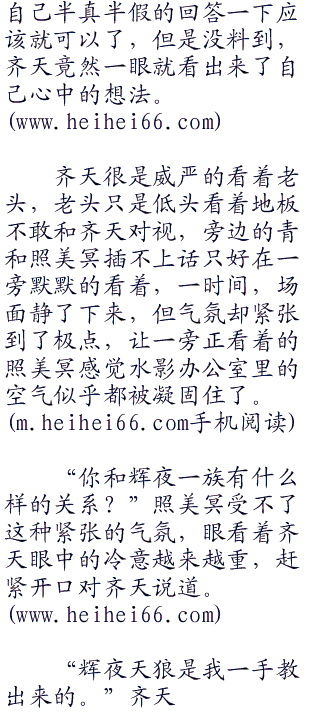 自己半真半假的回答一下应
该就可以了，但是没料到，
齐天竟然一眼就看出来了自
己心中的想法。
(www.heihei66.com)
齐天很是威严的看着老
头，老头只是低头看着地板
不敢和齐天对视，旁边的青
和照美冥插不上话只好在一
旁默默的看着，一时间，场
面静了下来，但气氛却紧张
到了极点，让一旁正看着的
照美冥感觉水影办公室里的
空气似乎都被凝固住了。
(m.heihei66.com手机阅读)
“你和辉夜一族有什么
样的关系？”照美冥受不了
这种紧张的气氛，眼看着齐
天眼中的冷意越来越重，赶
紧开口对齐天说道。
(www.heihei66.com)
“辉夜天狼是我一手教
出来的。”齐天